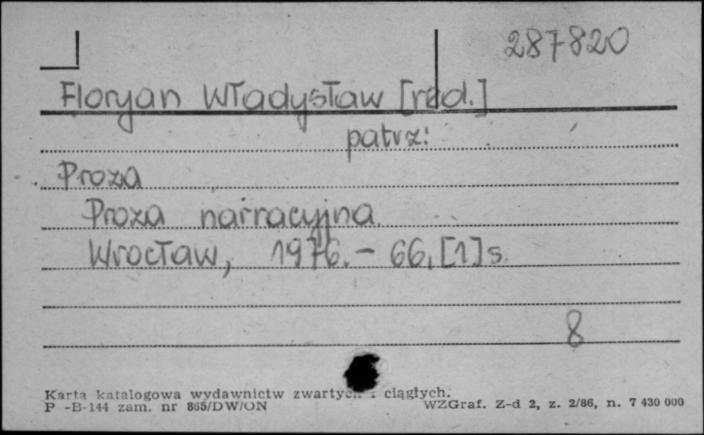 287820
Floryan Władysław [red.]
patrz:
Proza
Proza narracyjna.
Wrocław, 1976. - 66, [1] s.
8
Karta katalogowa wydawnictw zwartych i ciągłych.
P -B-144 zam. nr 865/DW/ON WZGraf. Z-d 2, z. 2/86, n. 7 430 000